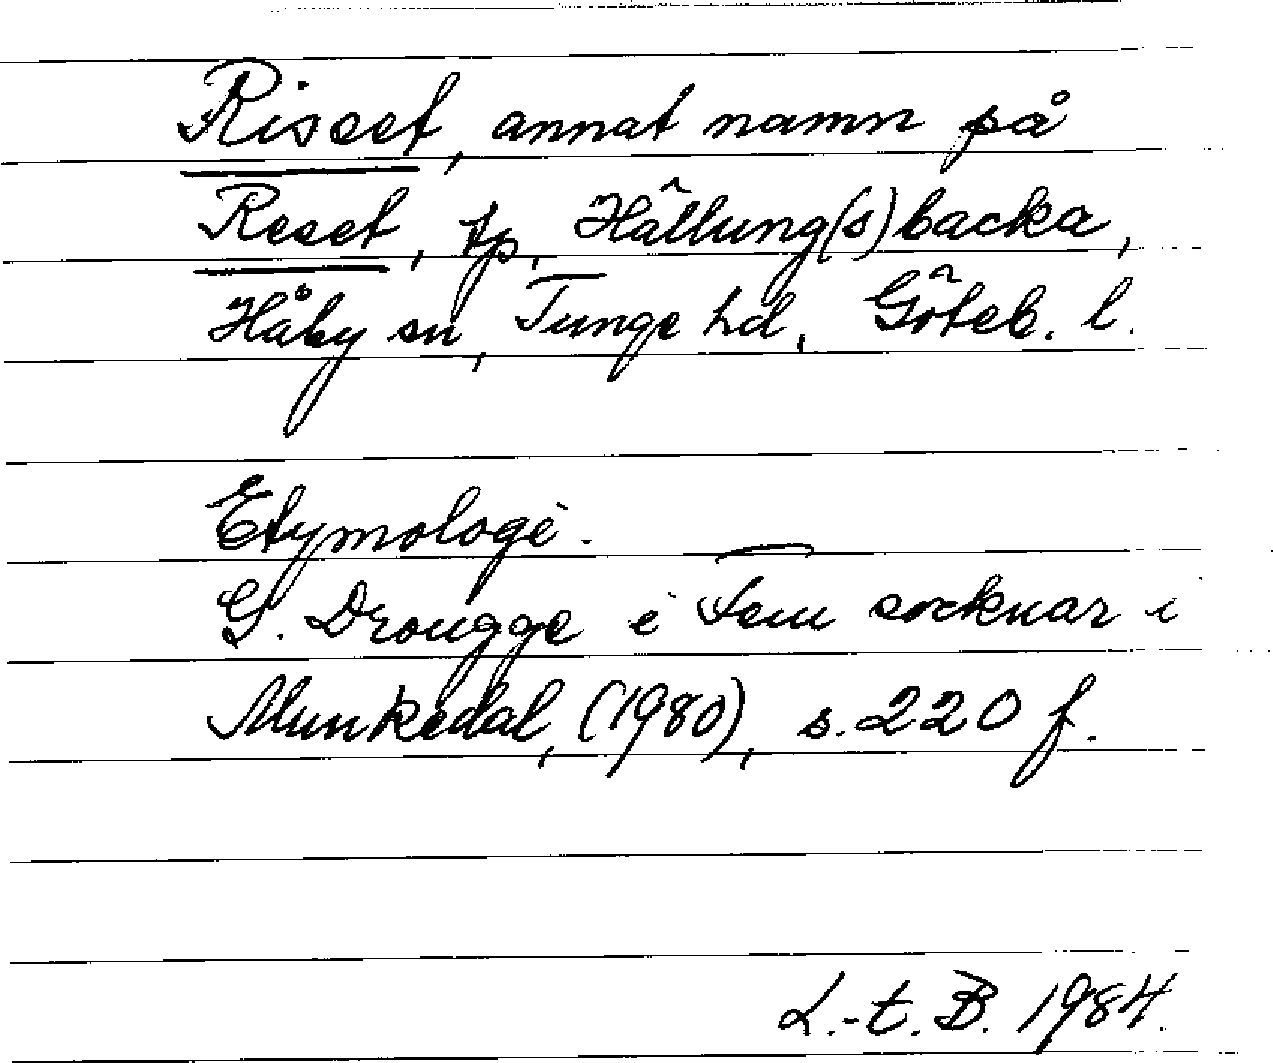 Riseet, annat namn på
Reset, tp, Hällung(s)backa,
Håby sn, Tunge hd, Göteb. l.
Etymologi.
G. Drougge i Fem socknar i
Munkedal, (1980), s. 220 f.
L.-t. B. 1984.